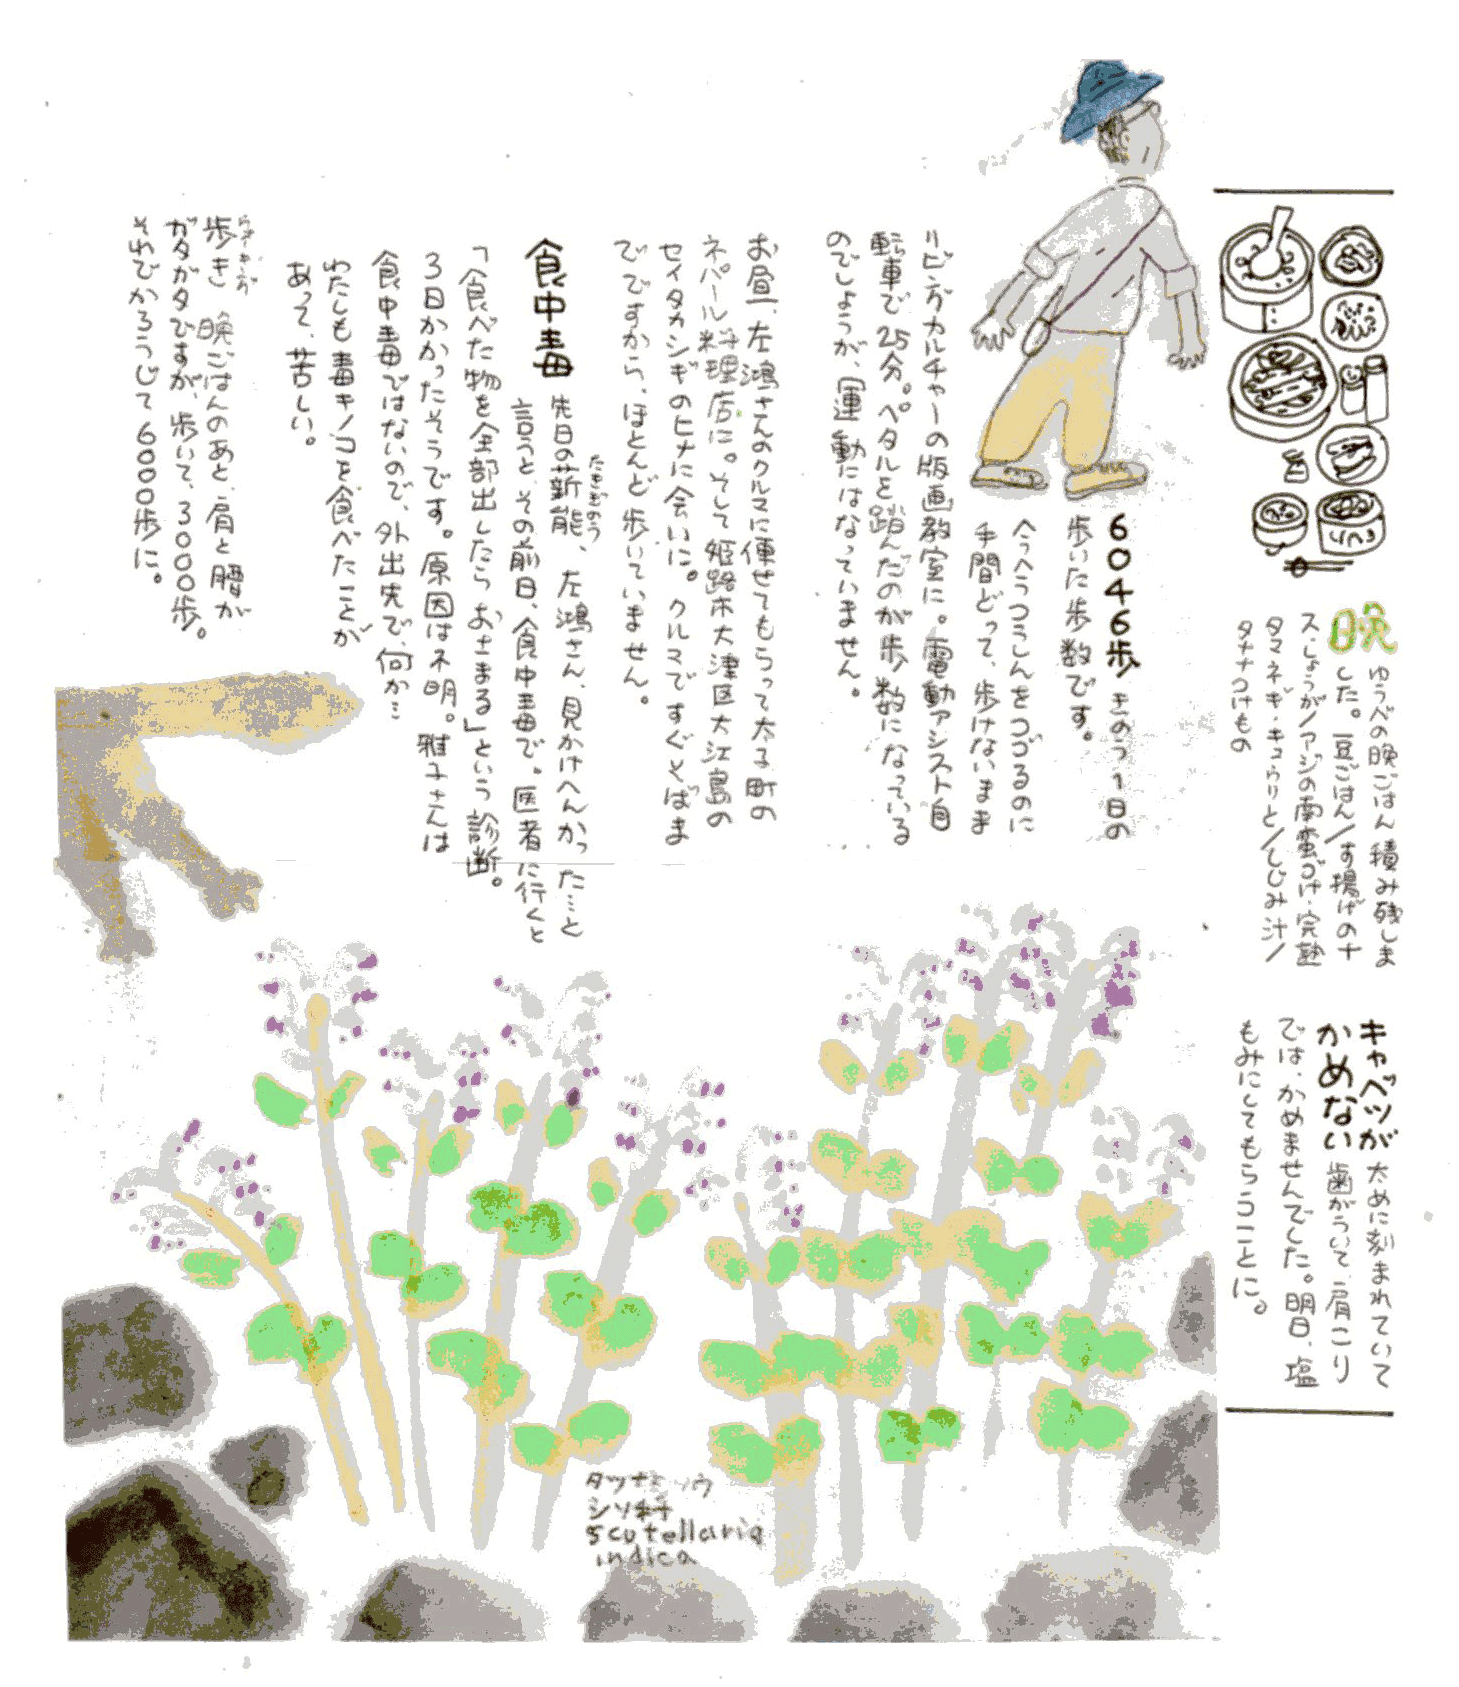 晩 ゆうべの晩ごはん積み残しま
した。豆ごはん/す揚げのナ
ス・しょうが/アジの南蛮づけ・完熟
タマネギ・キュウリと/しじみ汁/
タカナつけもの
キャベツが 太めに刻まれていて
かめない 歯がういて、肩こり
では、かめませんでした。明日、塩
もみにしてもらうことに。
6046歩 きのう1日の
歩いた歩数です。
へろへろつうしんをつづるのに
手間どって、歩けないまま
リビングカルチャーの版画教室に。電動アシスト自
転車で25分。ペタルを踏んだのが歩数になっている
のでしょうが、運動にはなっていません。
お昼、左鴻さんのクルマに便せてもらって太子町の
ネパール料理店に。そして姫路市大津区大江島の
セイタカシギのヒナに会いに。クルマですぐそばま
でですから、ほとんど歩いていません。
食中毒 先日の薪能、左鴻さん、見かけへんかった…と
たきぎのう
言うと、その前日、食中毒で。医者に行くと
「食べた物を全部出したらおさまる」という診断。
3日かかったそうです。原因は不明。雅子さんは
食中毒ではないので、外出先で、何か…
わたしも毒キノコを食べたことが
あって、苦しい。
歩き 晩ごはんのあと、肩と腰が
ガタガタですが、歩いて、3000歩。
それでかろうじて6000歩に。
タツナミソウ
シソ科
scutellaria
indica